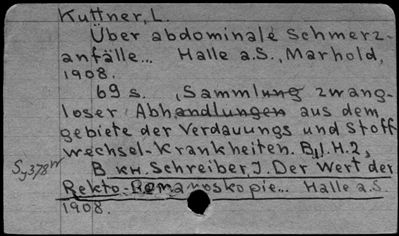 Kuttner, L.
Über abdominale Schmerz-
anfälle... Halle a.S., Marhold,
1908.
69 s. (Sammlung zwang-
loser Abhandlungen aus dem
gebiete der Verdauungs und Stoff
wechsel-Krankheiten. B.I. H.2,
Sy378vv B кн. Schreiber, J. Der Wert der
Rekto-Romanoskopie... Halle a.S.
1908.